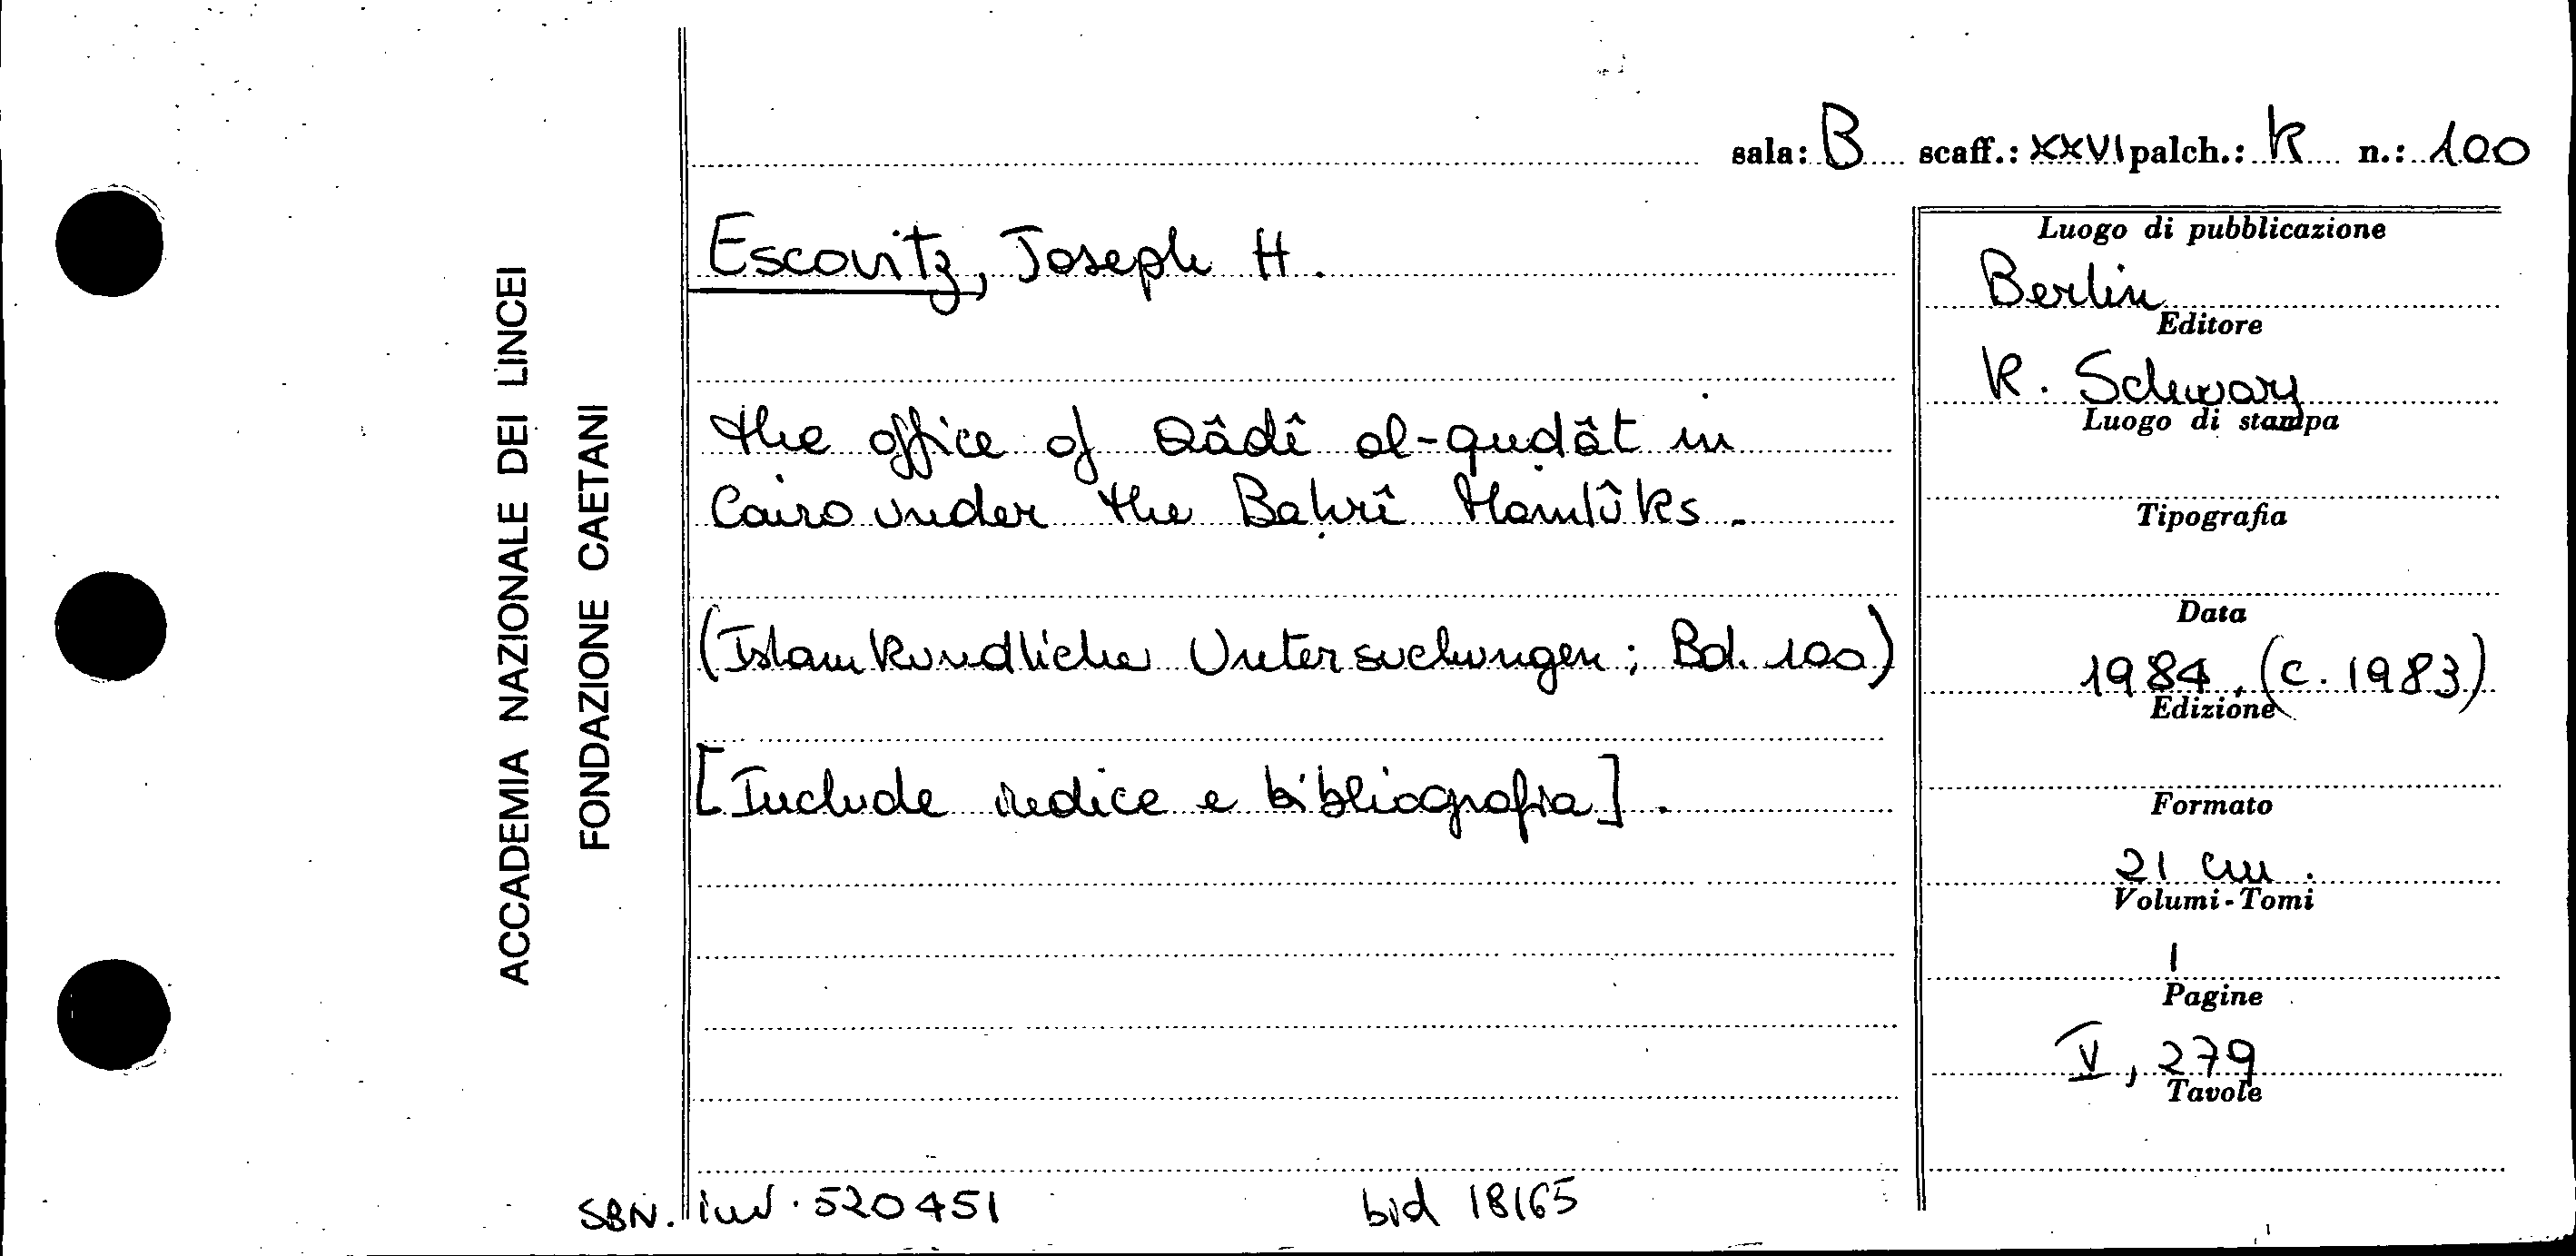 ACCADEMIA NAZIONALE DEI LINCEI
FONDAZIONE CAETANI
sala: B scaff.: XXVI palch.: K n.: 100
Escovitz, Joseph H.
the office of Qâḍî al-quḍât in
Cairo under the Baḥrî Mamlûks.
(Islamkundliche Untersuchungen; Bd. 100)
[Include indice e bibliografia].
Luogo di pubblicazione
Berlin
Editore
K. Schwarz
Luogo di stampa
Tipografia
Data
1984, (c. 1983)
Edizione
Formato
21 cm.
Volumi-Tomi
1
Pagine
V, 279
Tavole
SBN. inv. 520451 bid 18165